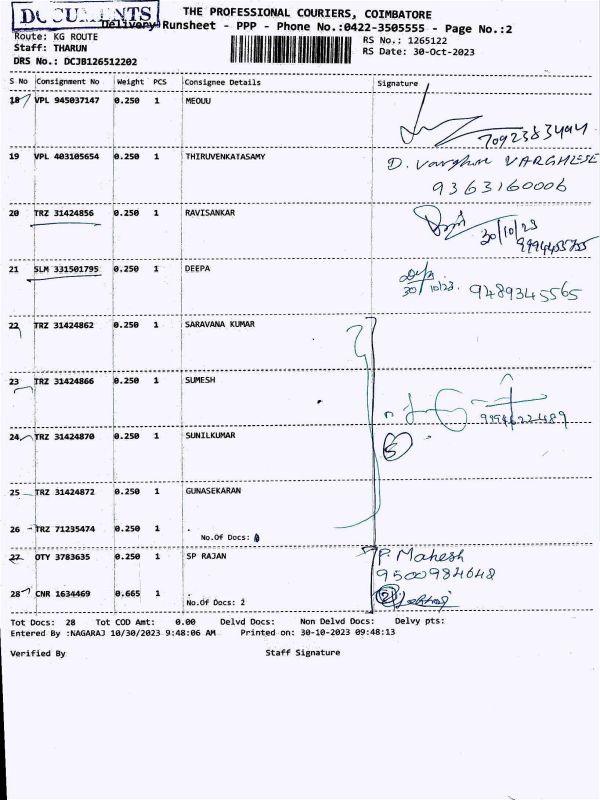 DOCUMENTS
THE PROFESSIONAL COURIERS, COIMBATORE
Delivery Runsheet - PPP - Phone No.:0422-3505555 - Page No.:2
Route: KG ROUTE
RS No.: 1265122
Staff: THARUN
RS Date: 30-Oct-2023
DRS No.: DCJB126512202
S No Consignment No Weight PCS Consignee Details Signature
18 VPL 945037147 0.250 1 MEOUU
7092383494
19 VPL 403105654 0.250 1 THIRUVENKATASAMY
D. Varghese VARGHESE
9363160006
20 TRZ 31424856 0.250 1 RAVISANKAR
30/10/23
9994455755
21 SLM 331501795 0.250 1 DEEPA
30/10/23. 9489345565
22 TRZ 31424862 0.250 1 SARAVANA KUMAR
23 TRZ 31424866 0.250 1 SUMESH
9994622489
24 TRZ 31424870 0.250 1 SUNILKUMAR
5
25 TRZ 31424872 0.250 1 GUNASEKARAN
26 TRZ 71235474 0.250 1 .
No.Of Docs:
27 OTY 3783635 0.250 1 SP RAJAN
P. Mahesh
9500984648
28 CNR 1634469 0.665 1 .
2
No.Of Docs: 2
Tot Docs: 28 Tot COD Amt: 0.00 Delvd Docs: Non Delvd Docs: Delvy pts:
Entered By :NAGARAJ 10/30/2023 9:48:06 AM Printed on: 30-10-2023 09:48:13
Verified By Staff Signature